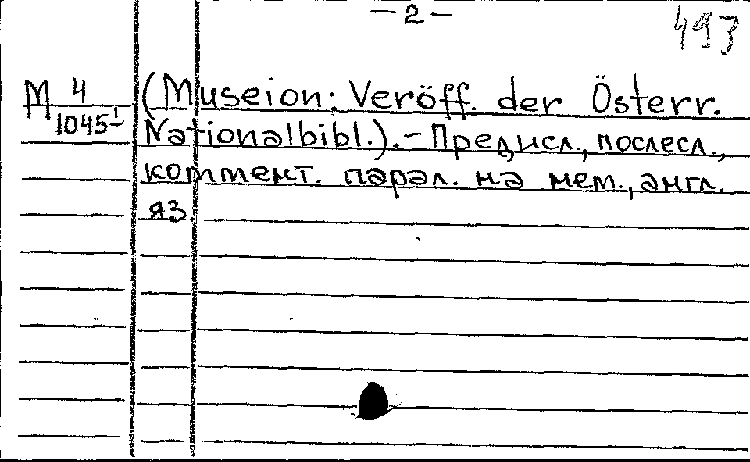 — 2 —
493
М 4
1045-1
(Museion: Veröff. der Österr.
Nationalbibl.).— Предисл., послесл.,
коммент. парал. на нем., англ.
яз.